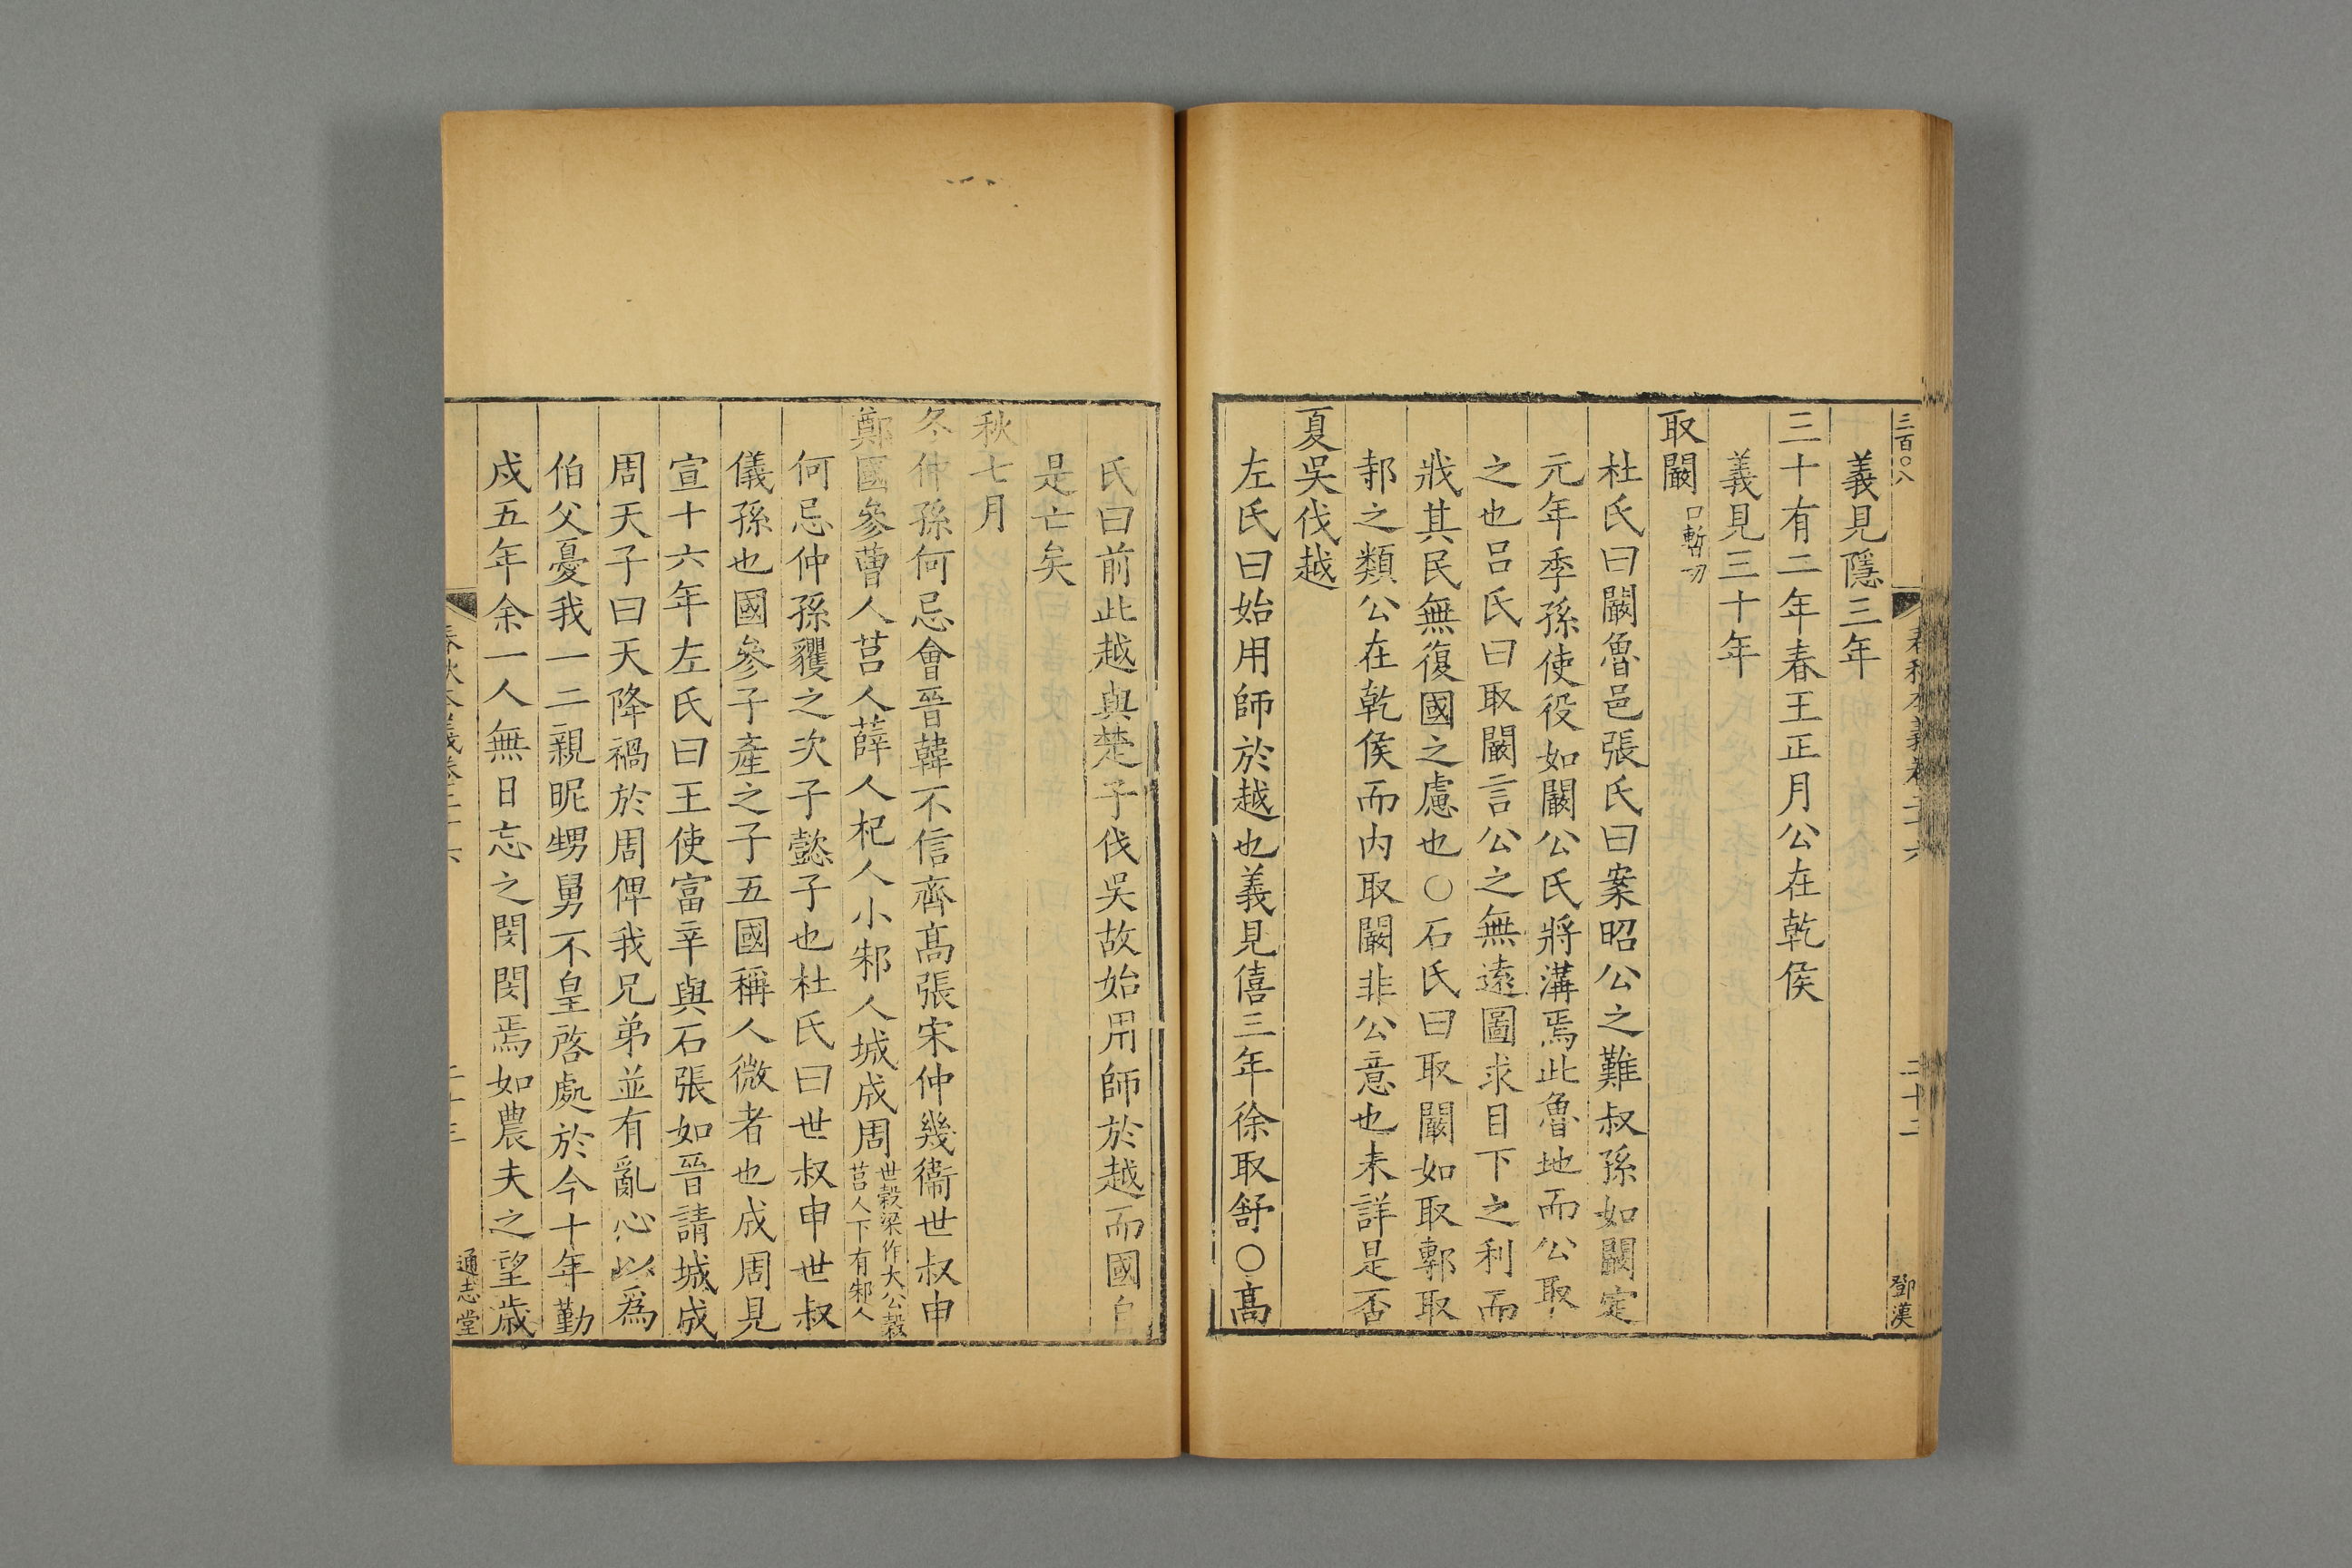 三百〇八
春秋本義卷二十六
二十二
鄧漢
義見隱三年
三十有二年春王正月公在乾侯
義見三十年
取闞口暫切
杜氏曰闞魯邑張氏曰案昭公之難叔孫如闞定
元年季孫使役如闞公氏將溝焉此魯地而公取
之也吕氏曰取闞言公之無遠圖求目下之利而
戕其民無復國之慮也○石氏曰取闞如取鄆取
邿之類公在乾侯而内取闞非公意也未詳是否
夏吳伐越
左氏曰始用師於越也義見僖三年徐取舒○髙
氏曰前此越與楚子伐吳故始用師於越而國自
是亡矣
秋七月
冬仲孫何忌會晉韓不信齊髙張宋仲幾衞世叔申
鄭國參曹人莒人薛人杞人小邾人城成周世榖梁作大公榖
莒人下有邾人
何忌仲孫貜之次子懿子也杜氏曰世叔申世叔
儀孫也國參子產之子五國稱人微者也成周見
宣十六年左氏曰王使富辛與石張如晉請城成
周天子曰天降禍於周俾我兄弟並有亂心以爲
伯父憂我一二親昵甥舅不皇啓處於今十年勤
戍五年余一人無日忘之閔閔焉如農夫之望歳
春秋本義卷二十六
二十三
通志堂